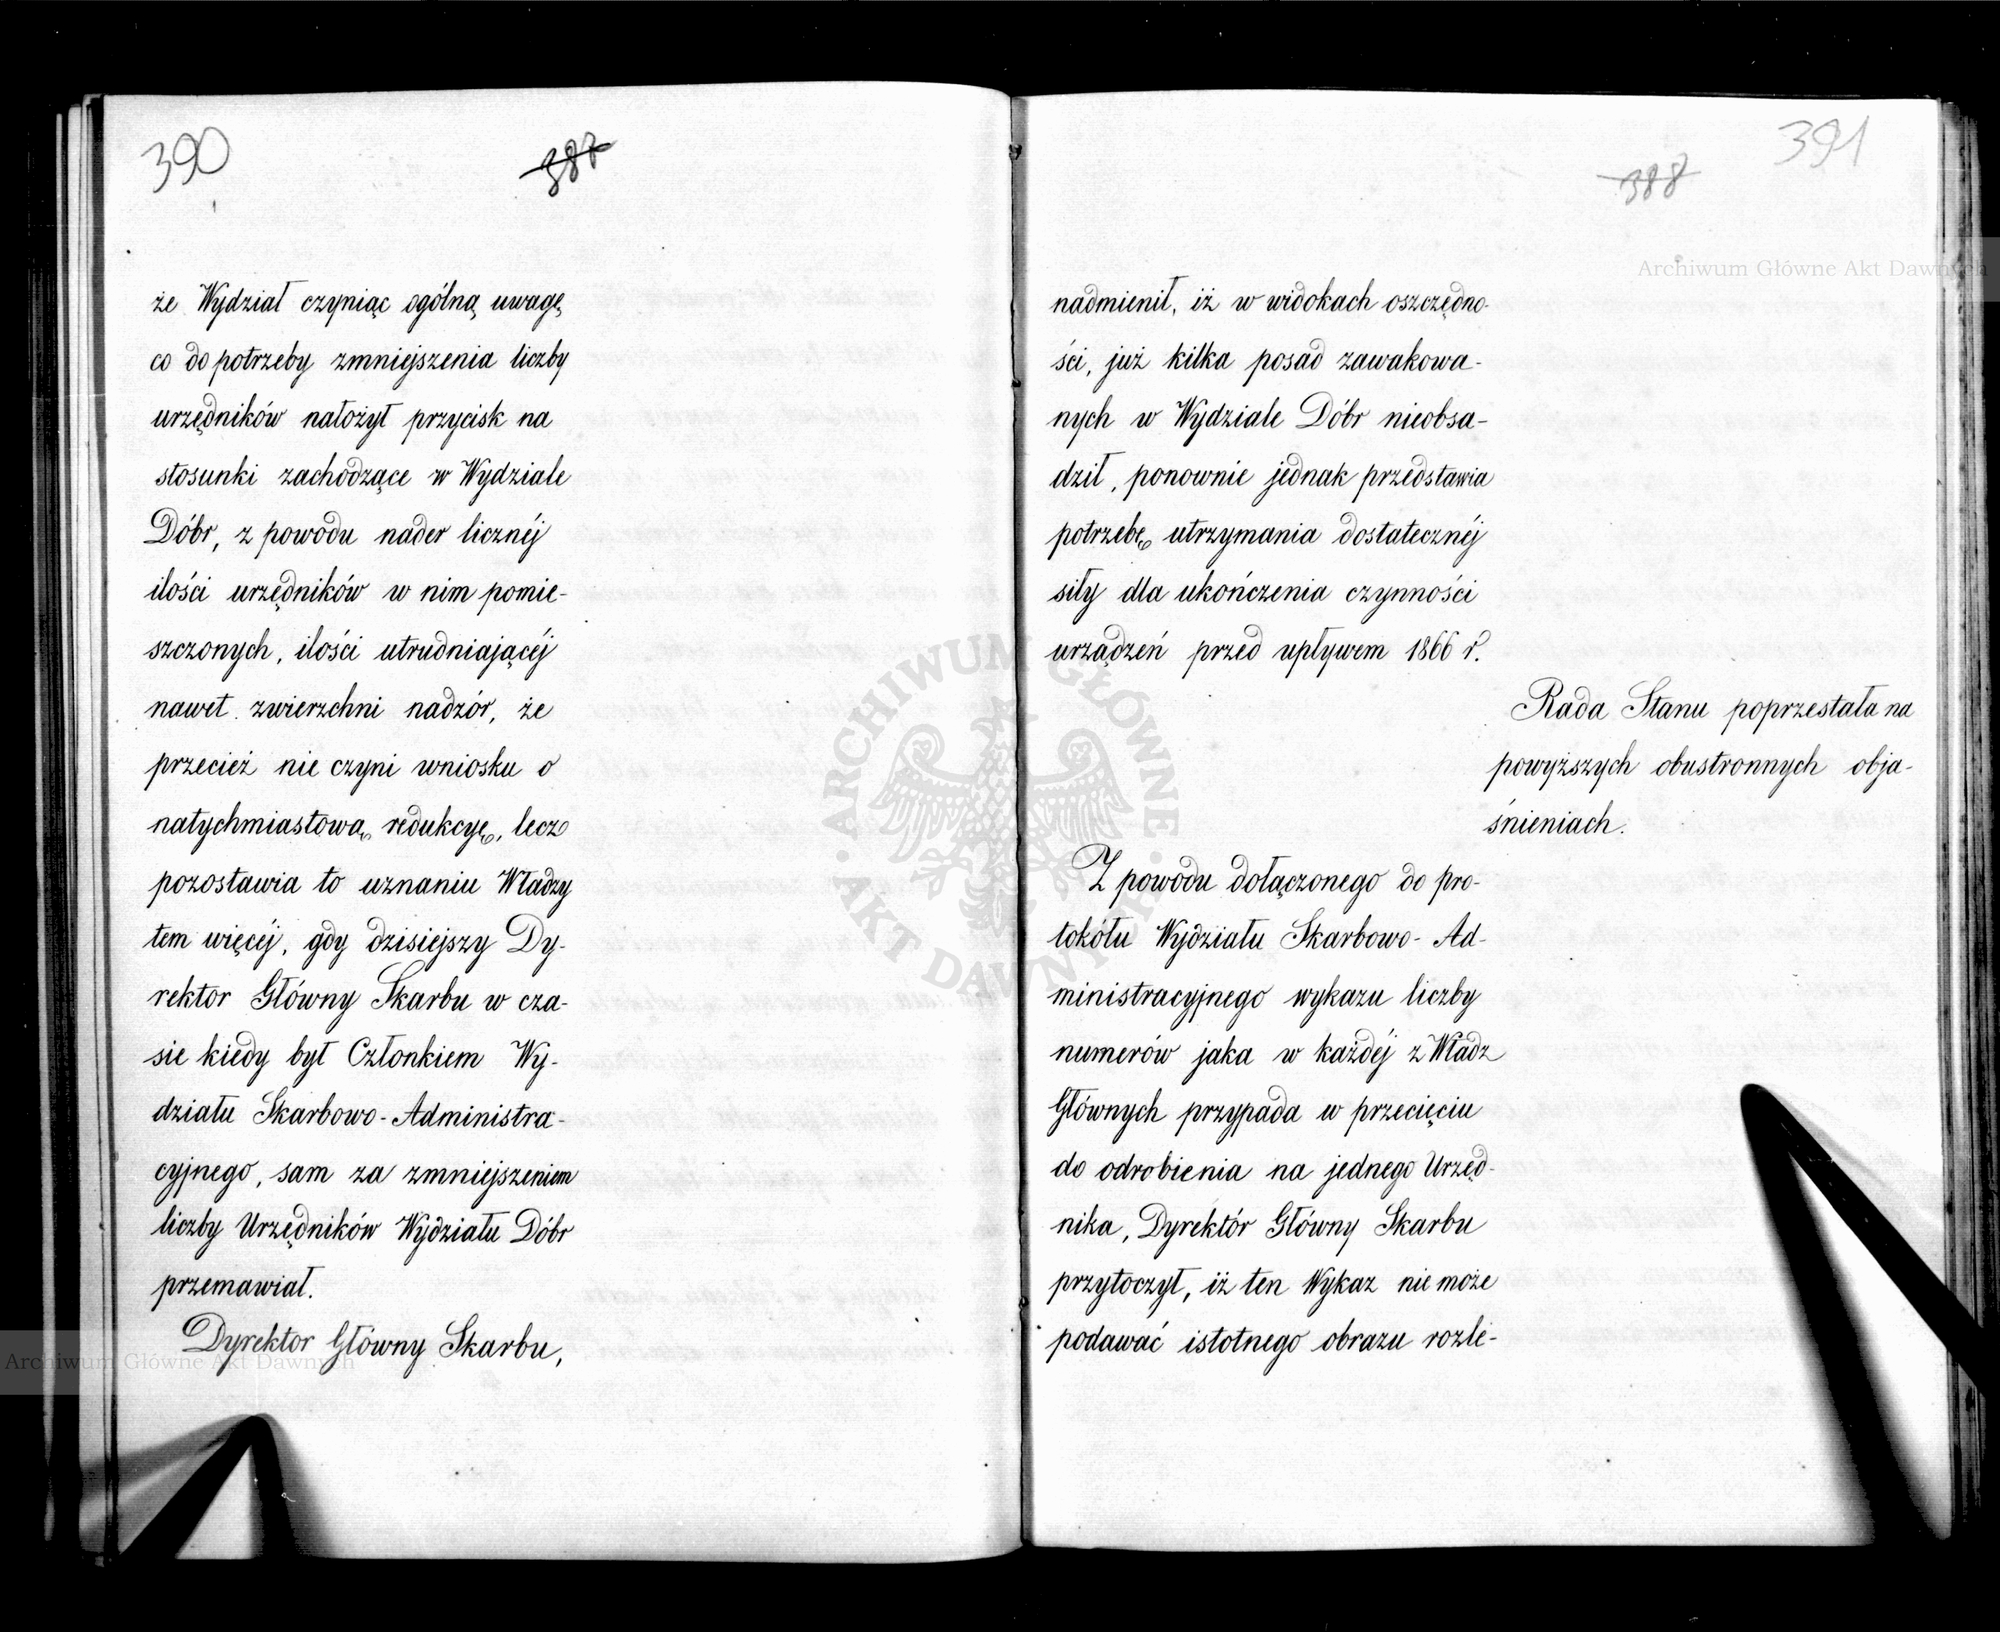 390
387
że Wydział czyniąc ogólną uwagę
co do potrzeby zmniejszenia liczby
urzędników nałożył przycisk na
stosunki zachodzące w Wydziale
Dóbr, z powodu nader licznéj
ilości urzędników w nim pomie-
szczonych, ilości utrudniającéj
nawet zwierzchni nadzór, że
przecież nie czyni wniosku o
natychmiastową redukcyę, lecz
pozostawia to uznaniu Władzy
tem więcéj, gdy dzisiejszy Dy-
rektor Główny Skarbu w cza-
sie kiedy był Członkiem Wy-
działu Skarbowo-Administra-
cyjnego, sam za zmniejszeniem
liczby Urzędników Wydziału Dóbr
przemawiał.
Dyrektor Główny Skarbu,
391
388
nadmienił, iż w widokach oszczędno-
ści, już kilka posad zawakowa-
nych w Wydziale Dóbr nieobsa-
dził, ponownie jednak przedstawia
potrzebę utrzymania dostatecznéj
siły dla ukończenia czynności
urządzeń przed upływem 1866 r.
Rada Stanu poprzestała na
powyższych obustronnych obja-
śnieniach.
Z powodu dołączonego do pro-
tokółu Wydziału Skarbowo-Ad-
ministracyjnego wykazu liczby
numerów jaka w każdéj z Władz
Głównych przypada w przecięciu
do odrobienia na jednego Urzęd-
nika, Dyrektór Główny Skarbu
przytoczył, iż ten Wykaz nie może
podawać istotnego obrazu rozle-
Archiwum Główne Akt Dawnych
ARCHIWUM GŁÓWNE
AKT DAWNYCH
Archiwum Główne Akt Dawnych